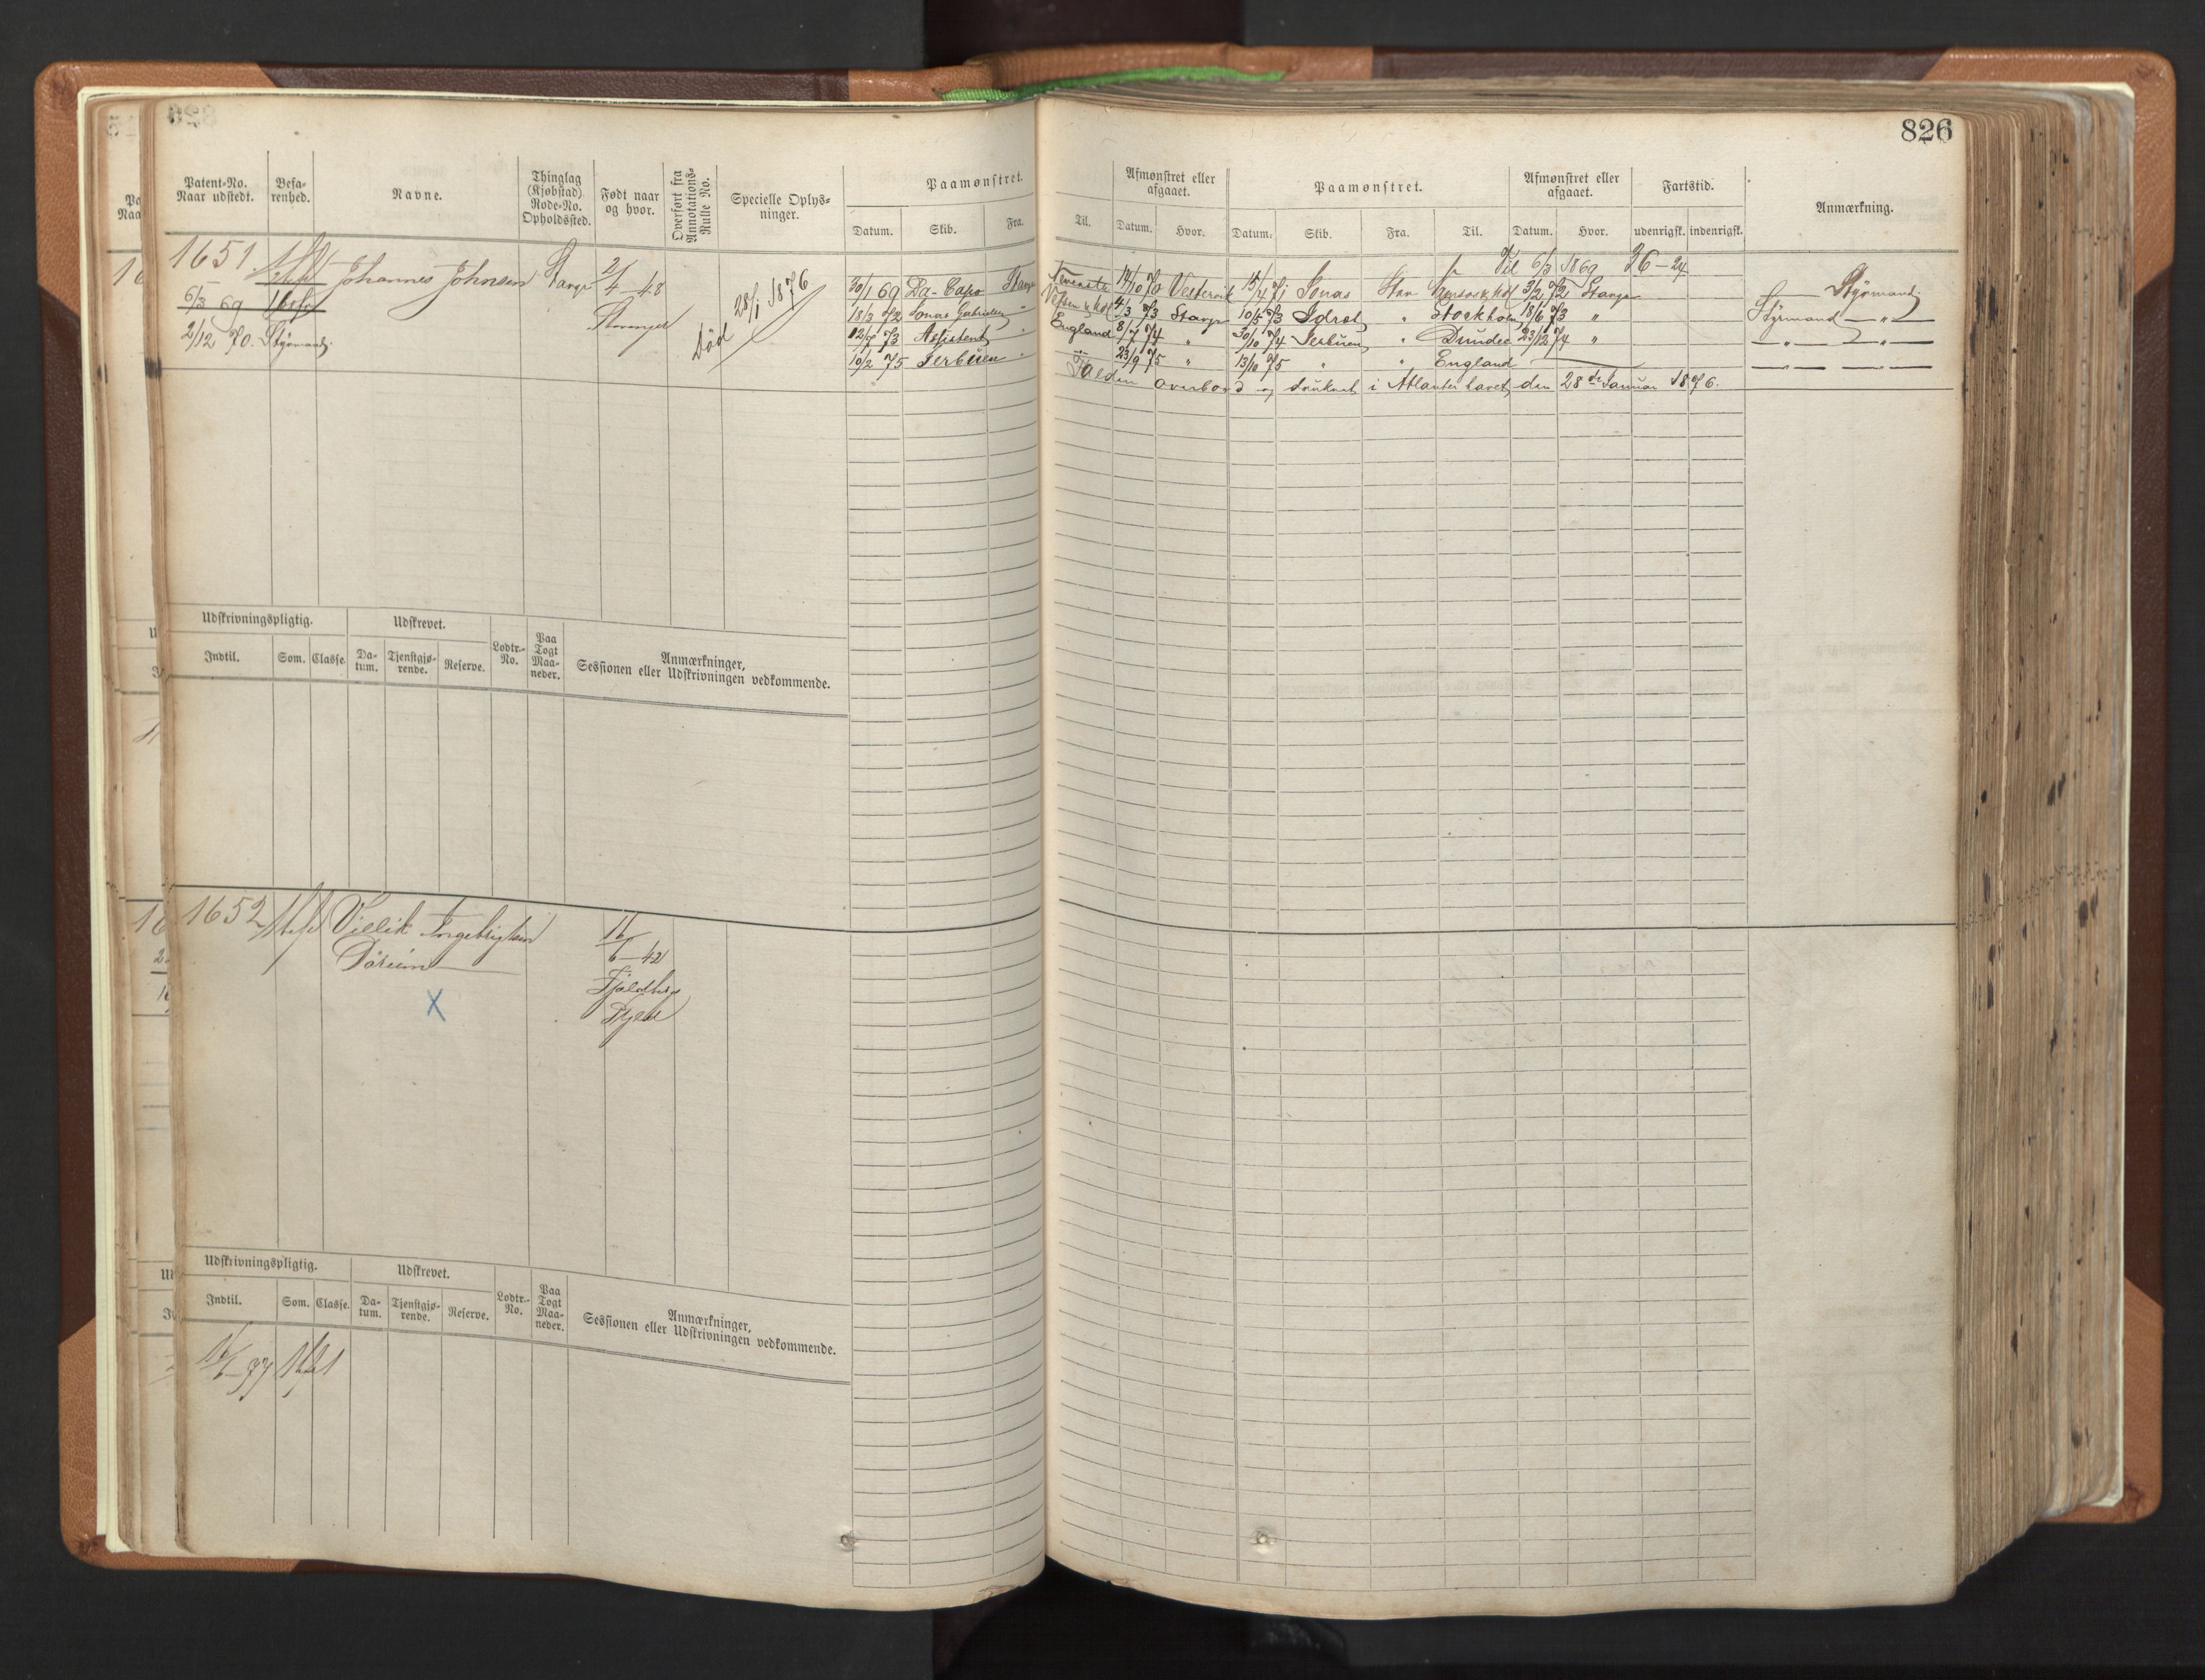 826
Patent-No. Naar udstedt. Befarenhed. Navne. Thinglag (Kjøbstad). Rode-No. Opholdssted. Født naar og hvor. Overført fra Annotations-Rulle No. Specielle Oplysninger. Paamønstret. Afmønstret eller afgaaet. Paamønstret. Afmønstret eller afgaaet. Fartstid. Anmærkning.
Datum. Skib. Fra. Til. Datum. Hvor. Datum. Skib. Fra. Til. Datum. Hvor. udenrigsk. indenrigsk.
1651 Johannes Johnsen 2/4-48 Til 6/3 1869 26-24
6/3 69 Stavanger Død 28/1 1876 20/1 69 Da-Capo Stavgr 14/10 70 Vestervik 15/4 71 Jonas Stav 3/2 72 Stavgr Styrmand
2/12 70. Styrmand 18/3 72 Jonas Gabrielsen " 4/3 73 Stavgr 10/5 73 Idræt " Stockholm 18/6 73 " Styrmand — " —
12/7 73 Assistent " England 8/7 74 " 30/10 74 " Dundee 23/12 74 " — " — — " —
10/2 75 " " 23/9 75 " 13/10 75 " " England — " — — " —
Falden overbord og druknet i Atlanterhavet den 28de Januar 1876.
Udskrivningspligtig. Udskrevet. Lodtr.-No. Paa Togt Maaneder. Anmærkninger, Sessionen eller Udskrivningen vedkommende.
Indtil. Som. Classe. Datum. Tjenstgjørende. Reserve.
1652 Villik Ingebrigtsen 16/6-42
X
Udskrivningspligtig. Udskrevet. Lodtr.-No. Paa Togt Maaneder. Anmærkninger, Sessionen eller Udskrivningen vedkommende.
Indtil. Som. Classe. Datum. Tjenstgjørende. Reserve.